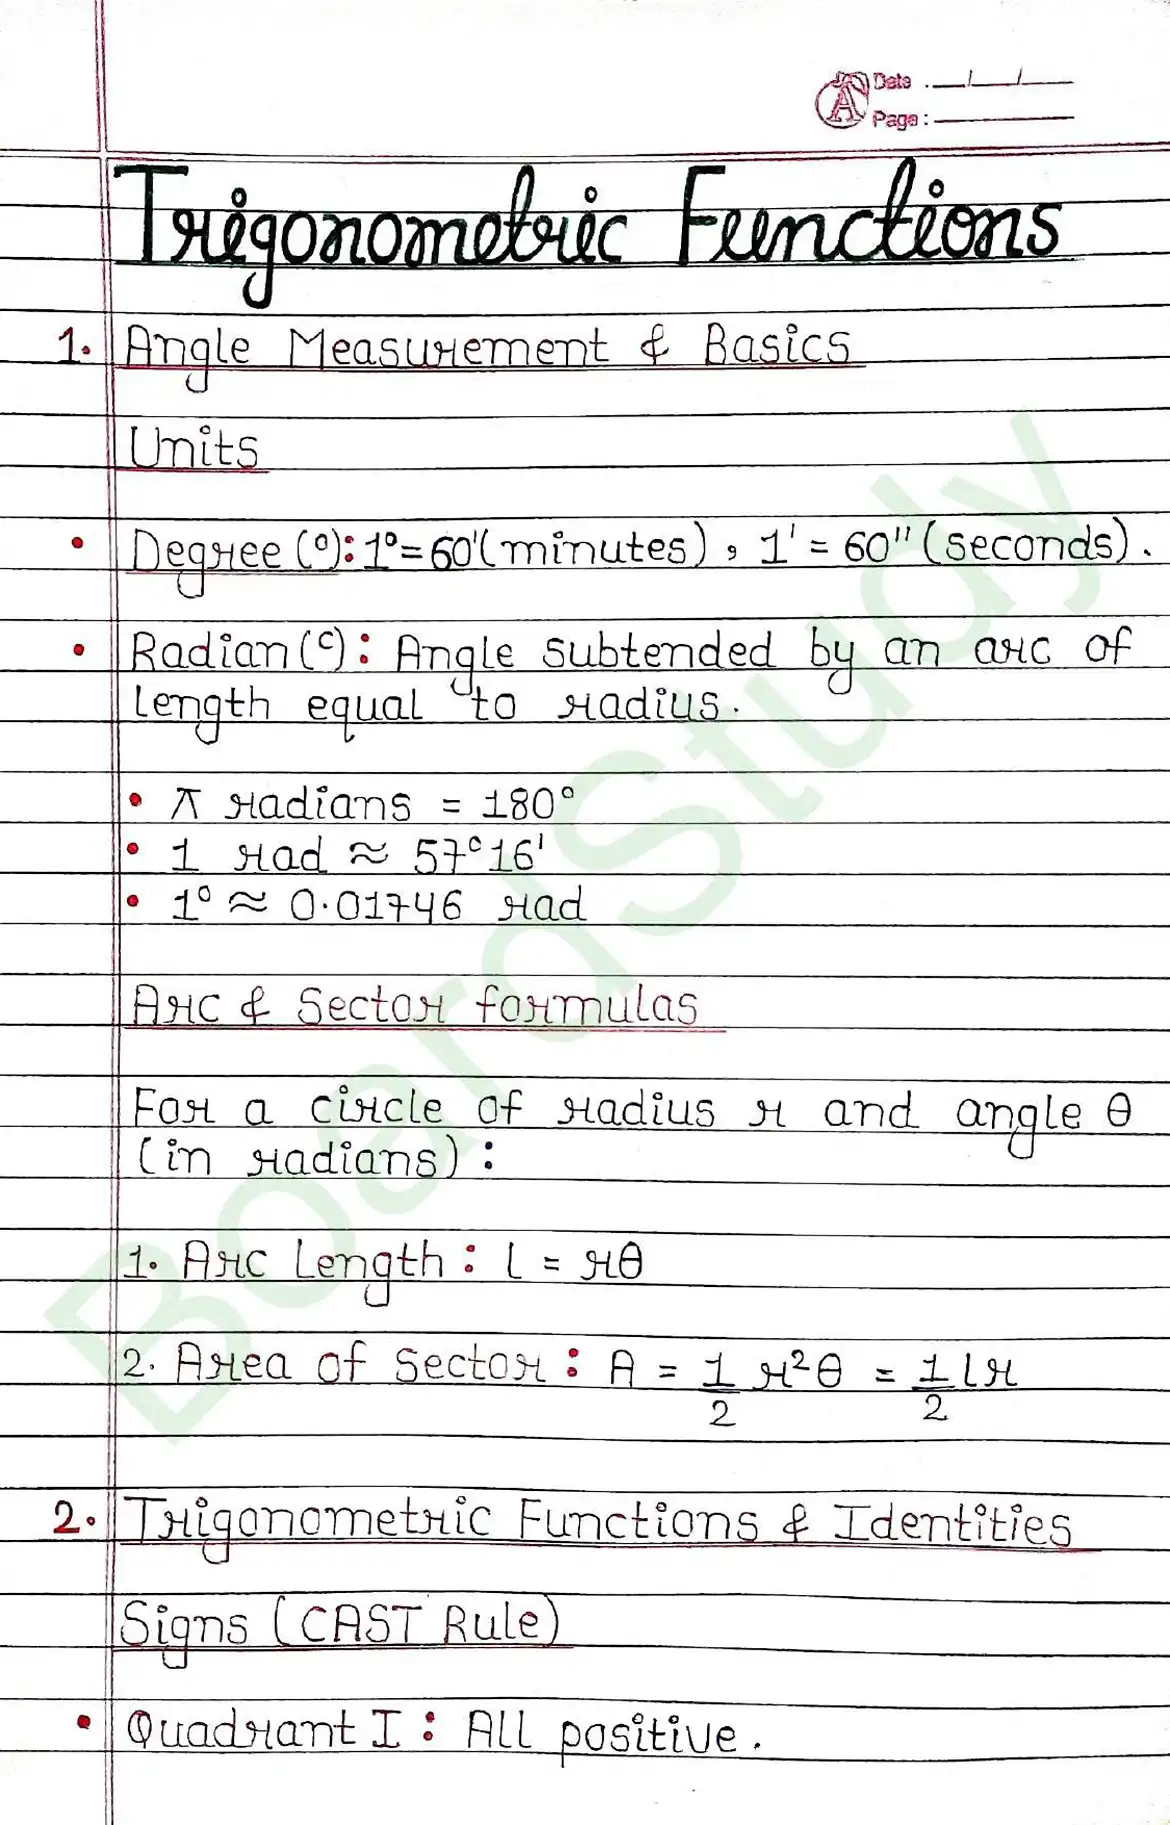 Date : __/__/__
Page : ______
Trigonometric Functions
1. Angle Measurement & Basics
Units
• Degree (°): 1° = 60' (minutes), 1' = 60" (seconds).
• Radian (ᶜ): Angle subtended by an arc of
length equal to radius.
• π radians = 180°
• 1 rad ≈ 57°16'
• 1° ≈ 0.01746 rad
Arc & Sector formulas
For a circle of radius r and angle θ
(in radians) :
1. Arc Length : l = rθ
2. Area of sector : A = 1/2 r²θ = 1/2 lr
2. Trigonometric Functions & Identities
Signs (CAST Rule)
• Quadrant I : All positive.
BoardStudy